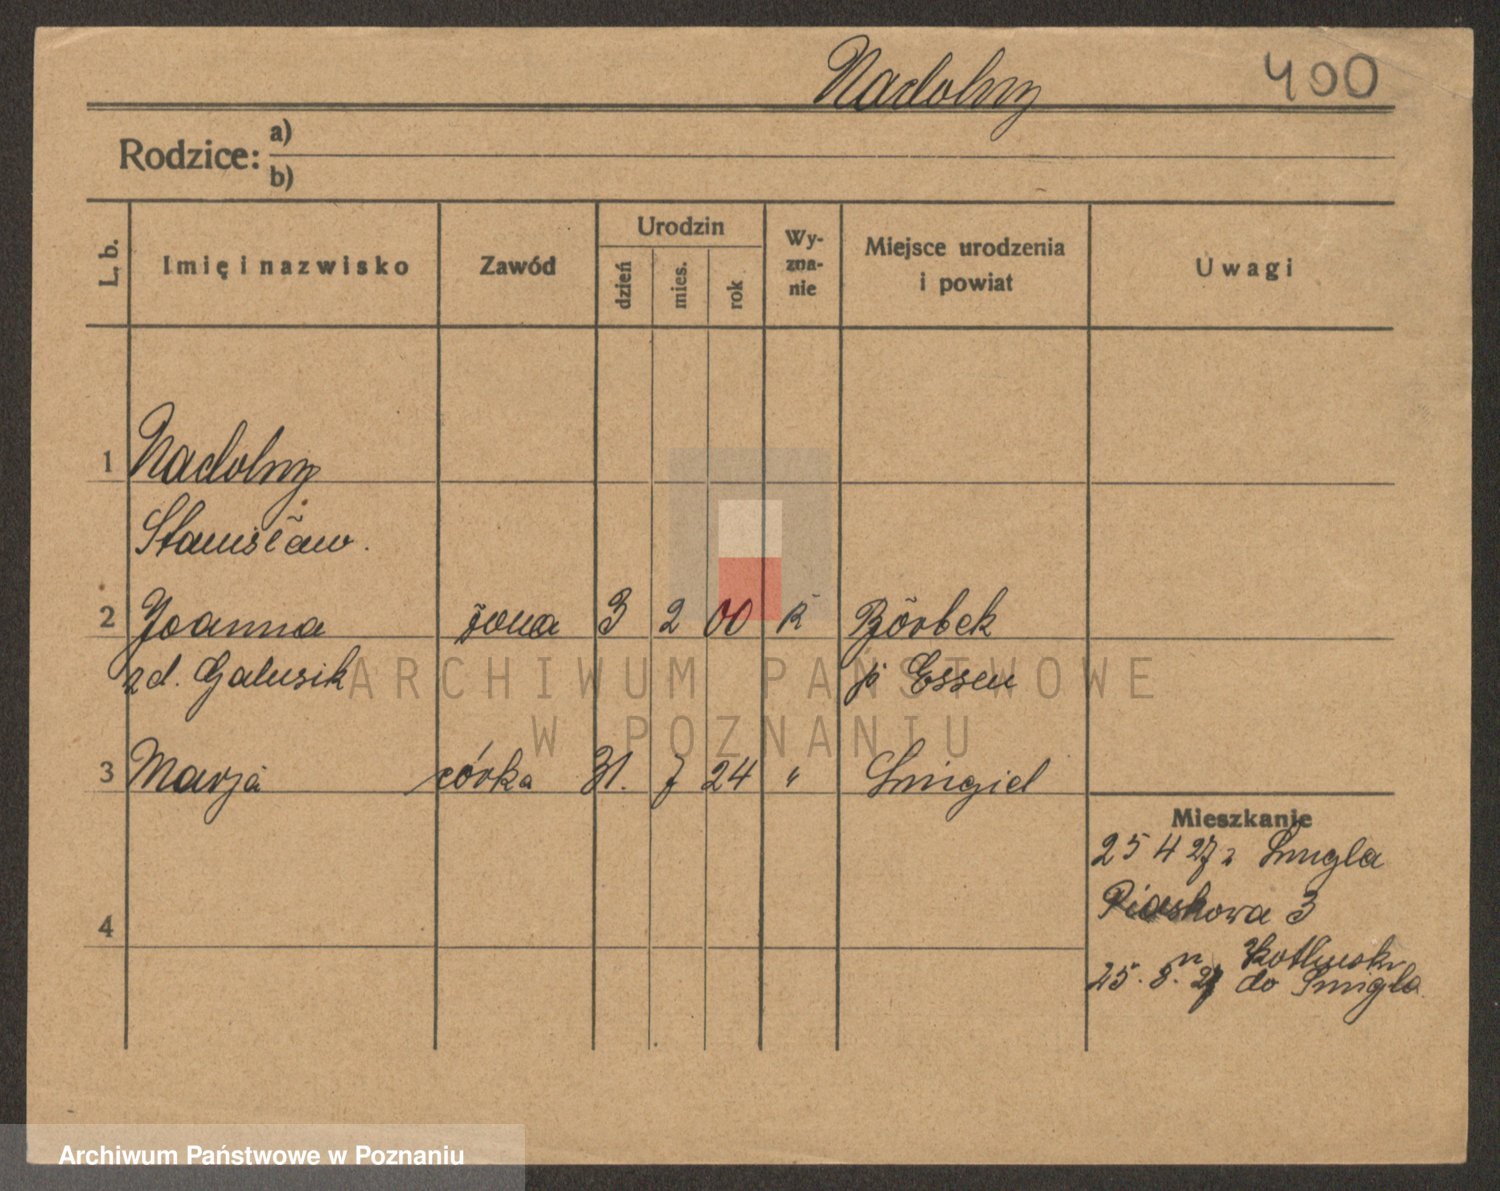 Nadolny 400
Rodzice: a)
b)
L. b. Imię i nazwisko Zawód Urodzin dzień mies. rok Wy-zna-nie Miejsce urodzenia i powiat Uwagi
1 Nadolny
Stanisław.
2 Joanna żona 3 2 00 k Börbek
zd. Galusik p Essen
3 Marja córka 31. 7 24 " Śmigiel
Mieszkanie
25 4 27 z Śmigla
Piaskowa 3
4
25. 8. 27 do Śmigla
ARCHIWUM PAŃSTWOWE
W POZNANIU
Archiwum Państwowe w Poznaniu